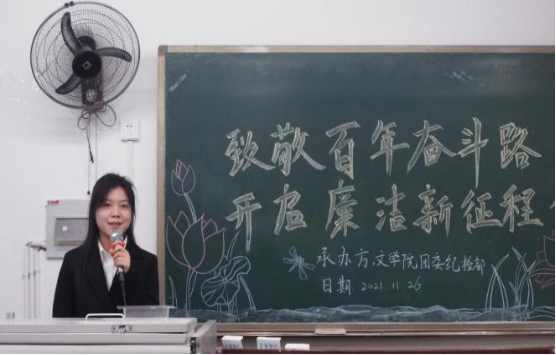 致敬百年奋斗路
开启廉洁新征程
承办方 文学院团委纪检部
日期 2021.11.26